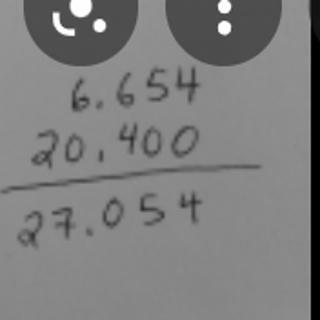 6.654
20.400
27.054